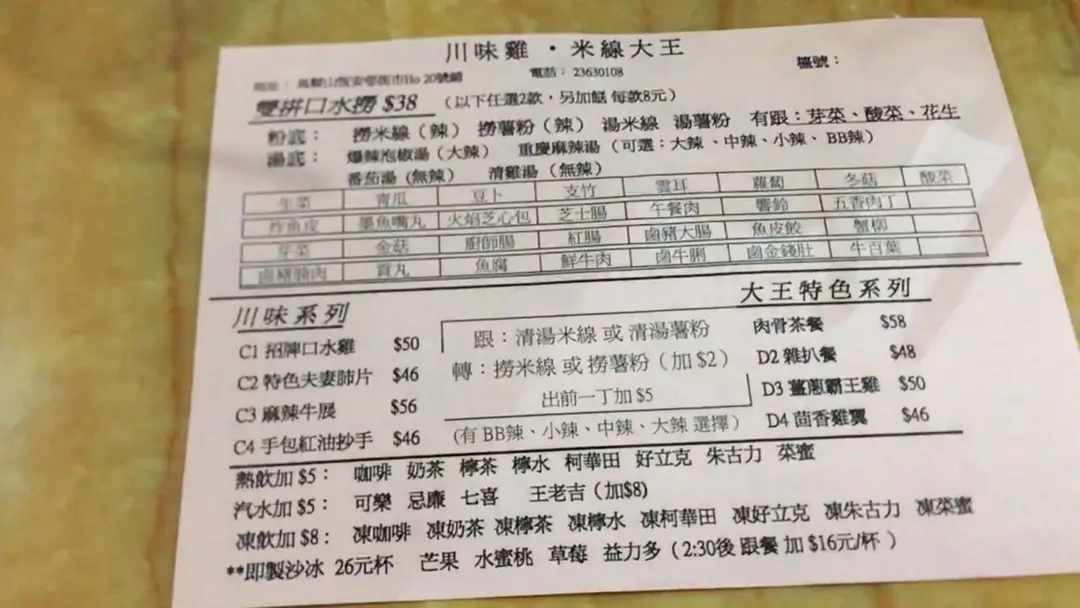 川味雞 · 米線大王
地址： 馬鞍山恆安邨街市No 20號鋪 電話： 23630108 檯號：
雙拼口水撈 $38 （以下任選2款，另加餸 每款8元）
粉底： 撈米線（辣） 撈薯粉（辣） 湯米線 湯薯粉 有跟：芽菜、酸菜、花生
湯底： 爆辣泡椒湯（大辣） 重慶麻辣湯（可選：大辣、中辣、小辣、BB辣）
番茄湯（無辣） 清雞湯（無辣）
生菜 青瓜 豆卜 支竹 雲耳 蘿蔔 冬菇 酸菜
炸魚皮 墨魚嘴丸 火焰芝心包 芝士腸 午餐肉 響鈴 五香肉丁
芽菜 金菇 廚師腸 紅腸 鹵豬大腸 魚皮餃 蟹柳
鹵豬腩肉 貢丸 魚腐 鮮牛肉 鹵牛脷 鹵金錢肚 牛百葉
川味系列
C1 招牌口水雞 $50
C2 特色夫妻肺片 $46
C3 麻辣牛展 $56
C4 手包紅油抄手 $46
跟：清湯米線 或 清湯薯粉
轉：撈米線 或 撈薯粉（加 $2）
出前一丁加 $5
(有 BB辣、小辣、中辣、大辣 選擇）
大王特色系列
肉骨茶餐 $58
D2 雜扒餐 $48
D3 薑蔥霸王雞 $50
D4 茴香雞翼 $46
熱飲加 $5： 咖啡 奶茶 檸茶 檸水 柯華田 好立克 朱古力 菜蜜
汽水加 $5： 可樂 忌廉 七喜 王老吉（加$8)
凍飲加 $8： 凍咖啡 凍奶茶 凍檸茶 凍檸水 凍柯華田 凍好立克 凍朱古力 凍菜蜜
**即製沙冰 26元杯 芒果 水蜜桃 草莓 益力多（2:30後 跟餐 加 $16元/杯 ）